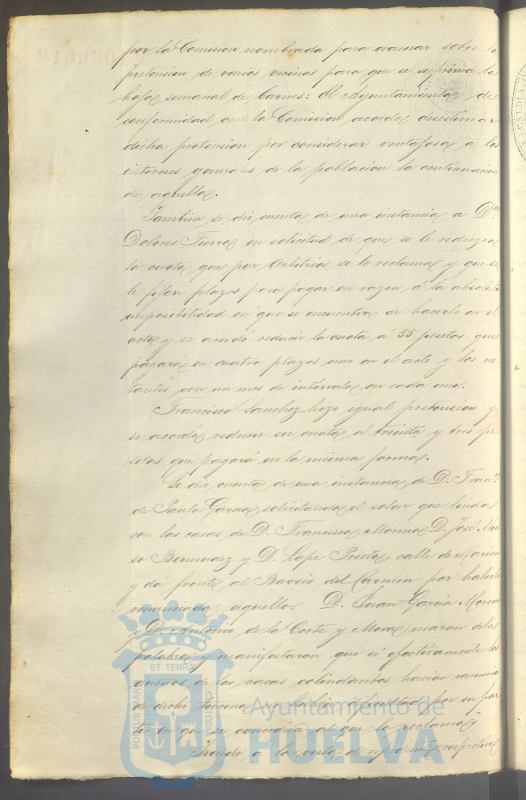 por la Comision nombrada para evacuar sobre la
pretension de varios vecinos para que se suprima la
hoja semanal de Carnes: El Ayuntamiento, de
conformidad con la Comision acordó desestimar
dicha pretension por considerar ventajosa a los
intereses generales de la poblacion la continuacion
de aquella.
Tambien se dió cuenta de una instancia de Dª
Dolores Tierra en solicitud de que se le reduzca
la cuota que por Arbitrios se le reclama y que se
le fijen plazos para pagar en razon á la absoluta
imposibilidad en que se encuentra de hacerlo en el
acto y se acordó reducir la cuota á 55 pesetas que
pagará en cuatro plazos uno en el acto y los res
tantes con un mes de intervalo en cada uno.
Francisco Sanchez hizo igual pretension y
se acordó reducir su cuota á treinta y tres pe
setas que pagará en la misma forma.
Se dió cuenta de una instancia de D. Franº
de Paula Garcia solicitando el solar que linda
con las casas de D. Francisco Morano, D. José
Bermudez y D. Lope calle de Marina
y dá frente al Barrio del Carmen por haberlo
renunciado aquellos. D. Juan Garcia Moreno
y D. Antonio de la Corte y Mora usaron de la
palabra y manifestaron que si efectivamente los
dueños de las casas colindantes hacian renuncia
de dicho terreno no habia dificultad por su par
te en que se concediera al que lo reclama y
Traido a la vista el expediente respectivo
PORTUS MARIS ET TERRAE CUSTODIA
Ayuntamiento de
HUELVA